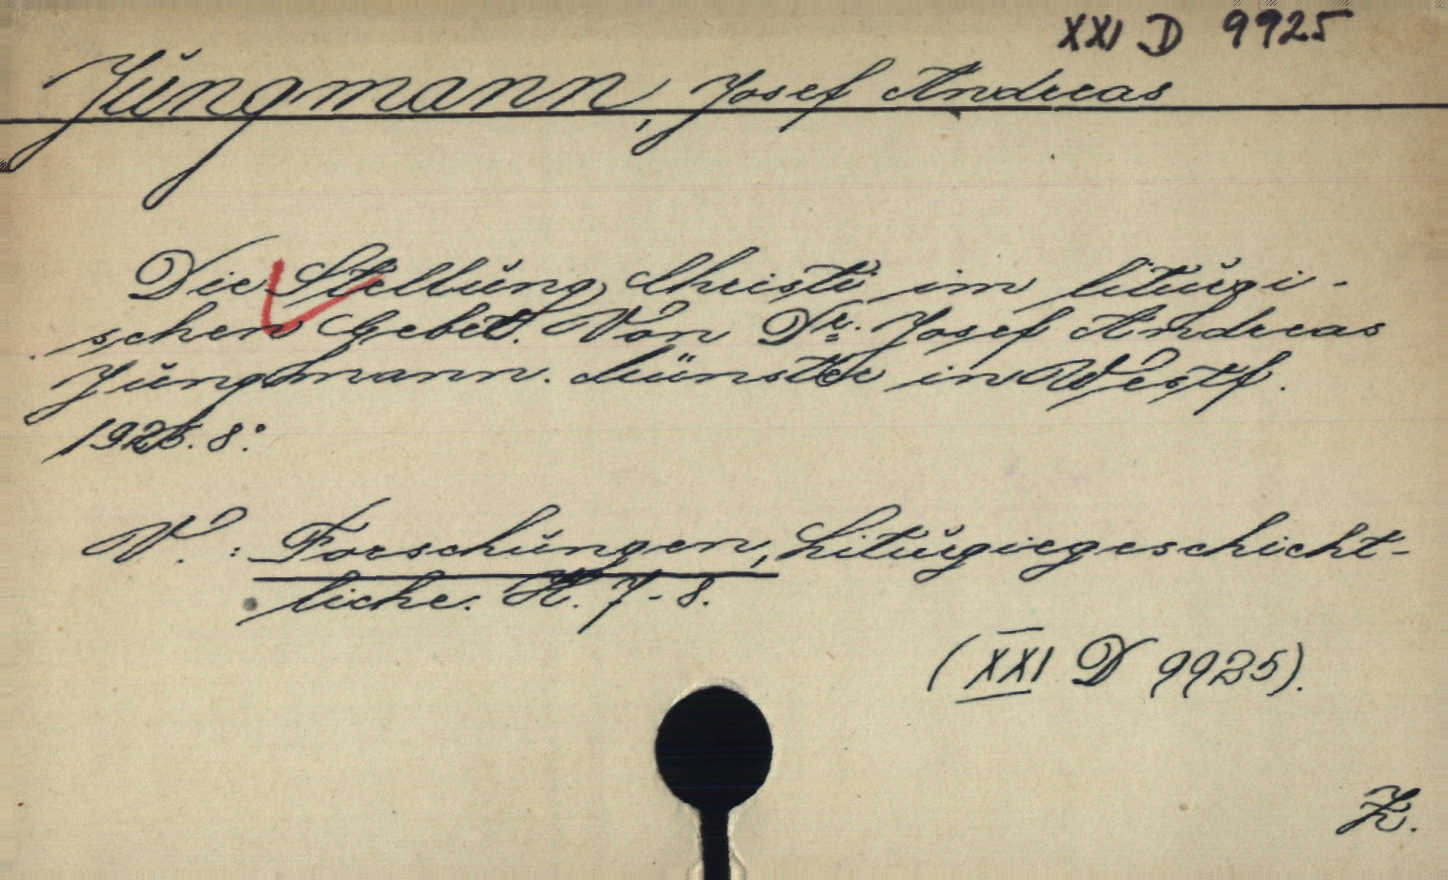 XXI D 9925
Jungmann, Josef Andreas
Die Stellung Christi im liturgi-
schen Gebet. Von Dr. Josef Andreas
Jungmann. Münster in Westf.
1925. 8°
V.: Forschungen, Liturgiegeschicht-
liche. H. 7-8.
(XXI D 9925).